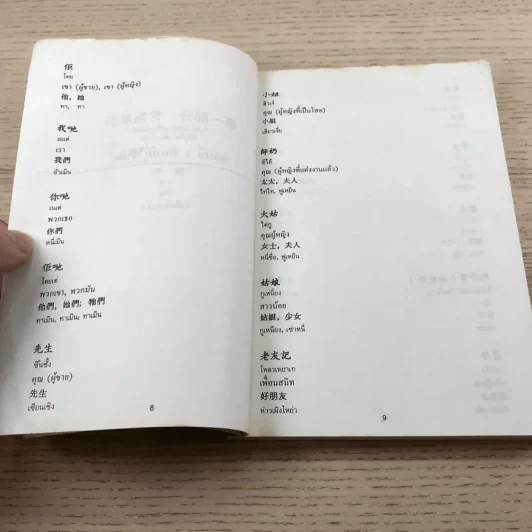 佢
โคย
เขา (ผู้ชาย), เขา (ผู้หญิง)
他, 她
ทา, ทา
我哋
งอเต่
เรา
我們
อั๋วเมิน
你哋
เนเต่
พวกเธอ
你們
หนี่เมิน
佢哋
โคยเต่
พวกเขา, พวกมัน
他們, 她們; 牠們
ทาเมิน, ทาเมิน; ทาเมิน
先生
ซีนซั้ง
คุณ (ผู้ชาย)
先生
เซียนเซิง
8
小姐
ซิวเจ๋
คุณ (ผู้หญิงที่เป็นโสด)
小姐
เสียวเจี่ย
師奶
ซีใล้
คุณ (ผู้หญิงที่แต่งงานแล้ว)
太太, 夫人
ไท่ไท, ฟูเหยิน
大姑
ไต่กู
คุณผู้หญิง
女士, 夫人
หนี่ซื่อ, ฟูเหยิน
姑娘
กูเหนียง
สาวน้อย
姑娘, 少女
กูเหนียง, เซ่าหนี่
老友記
โหลวเหยาเก
เพื่อนสนิท
好朋友
ห่าวเผิงโหย่ว
9